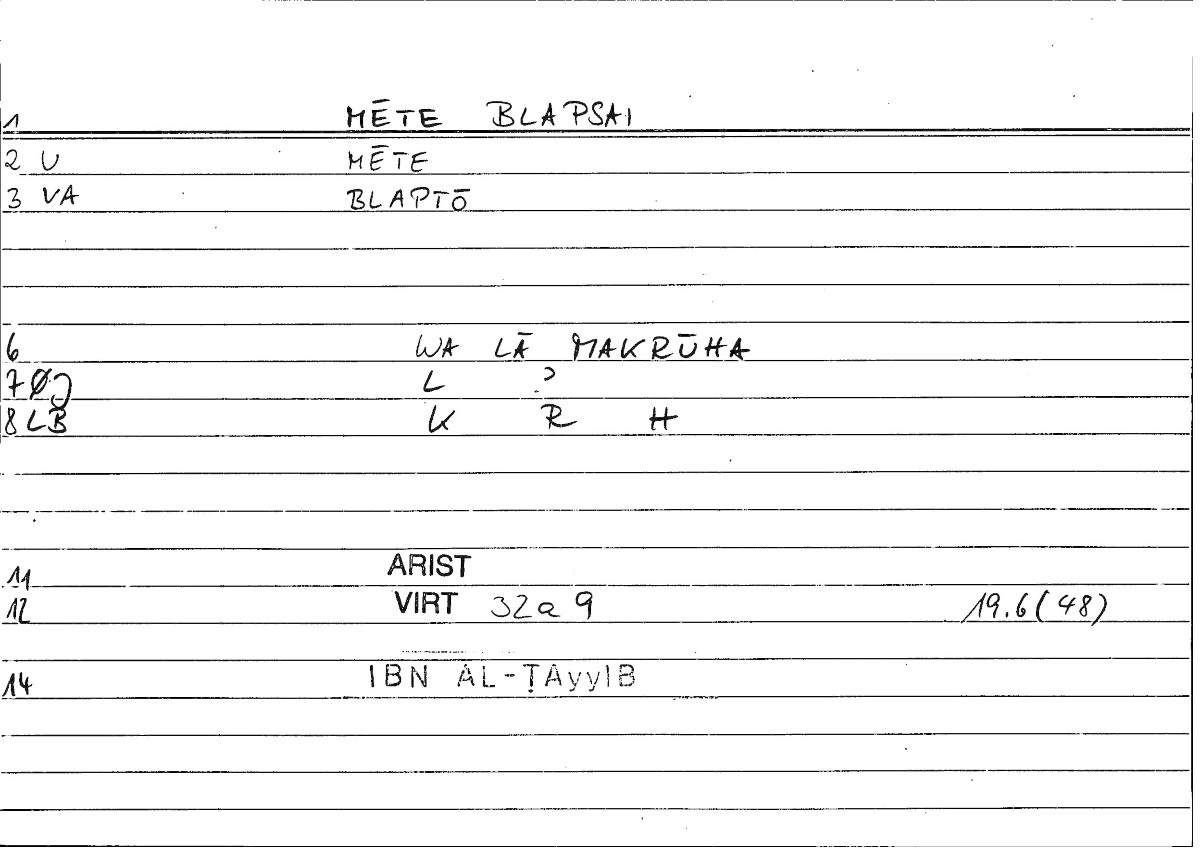 1 MĒTE BLAPSAI
2 U MĒTE
3 VA BLAPTŌ
6 WA LĀ MAKRŪHA
7 ØJ L ɔ
8 LB K R H
11 ARIST
12 VIRT 32a 9 19.6(48)
14 IBN AL-ṬAyyIB